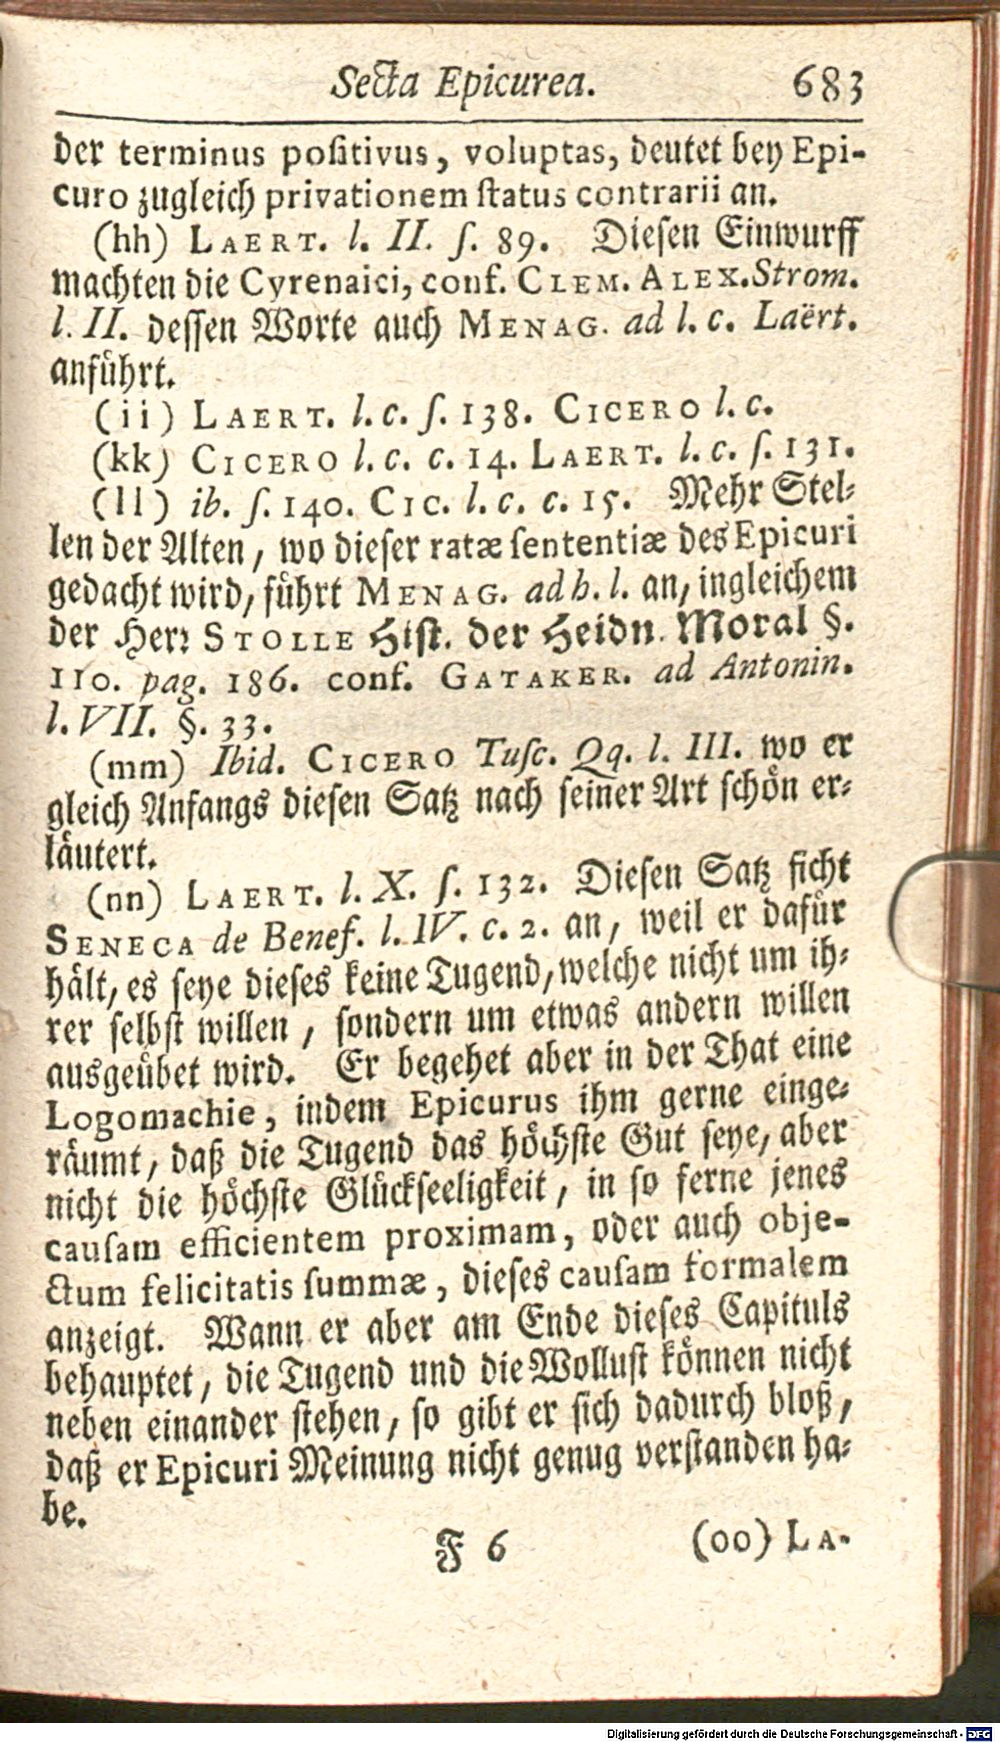 Secta Epicurea. 683
der terminus positivus, voluptas, deutet bey Epi-
curo zugleich privationem status contrarii an.
(hh) LAERT. l. II. ſ. 89. Diesen Einwurff
machten die Cyrenaici, conf. CLEM. ALEX. Strom.
l. II. dessen Worte auch MENAG. ad l. c. Laërt.
anführt.
(ii) LAERT. l. c. ſ. 138. CICERO l. c.
(kk) CICERO l. c. c. 14. LAERT. l. c. ſ. 131.
(ll) ib. ſ. 140. CIC. l. c. c. 15. Mehr Stel-
len der Alten, wo dieser ratæ sententiæ des Epicuri
gedacht wird, führt MENAG. ad h. l. an, ingleichem
der Herr STOLLE Hist. der Heidn. Moral §.
110. pag. 186. conf. GATAKER. ad Antonin.
l. VII. §. 33.
(mm) Ibid. CICERO Tusc. Qq. l. III. wo er
gleich Anfangs diesen Satz nach seiner Art schön er-
läutert.
(nn) LAERT. l. X. ſ. 132. Diesen Satz ficht
SENECA de Benef. l. IV. c. 2. an, weil er dafür
hält, es seye dieses keine Tugend, welche nicht um ih-
rer selbst willen, sondern um etwas andern willen
ausgeübet wird. Er begehet aber in der That eine
Logomachie, indem Epicurus ihm gerne einge-
räumt, daß die Tugend das höchste Gut seye, aber
nicht die höchste Glückseeligkeit, in so ferne jenes
causam efficientem proximam, oder auch obje-
ctum felicitatis summæ, dieses causam formalem
anzeigt. Wann er aber am Ende dieses Capituls
behauptet, die Tugend und die Wollust können nicht
neben einander stehen, so gibt er sich dadurch bloß,
daß er Epicuri Meinung nicht genug verstanden ha-
be.
F 6 (oo) LA-
Digitalisierung gefördert durch die Deutsche Forschungsgemeinschaft - DFG